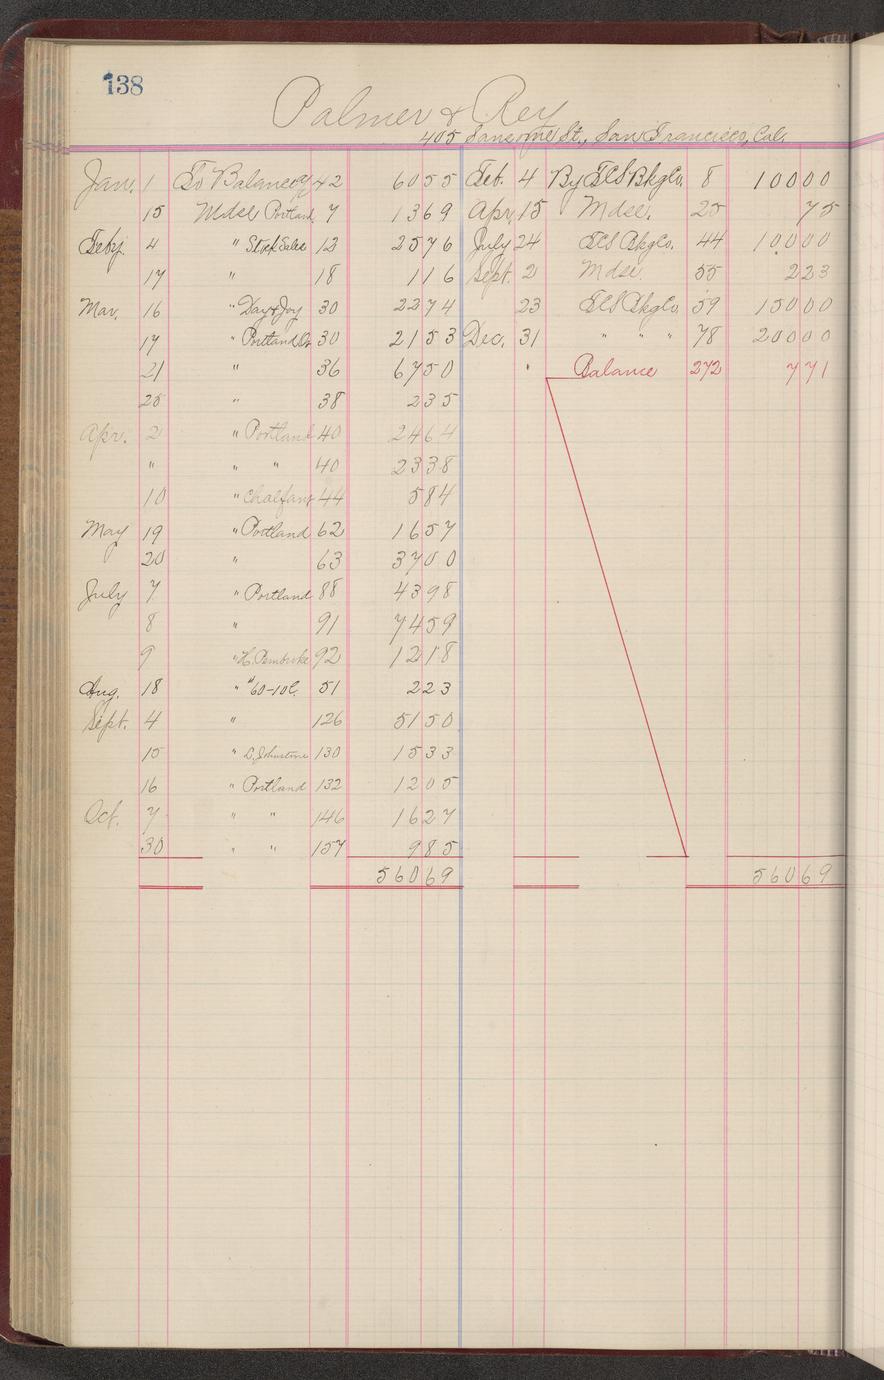 138
Palmer & Rey
405 Sansome St., San Francisco, Cal.
Jan. 1 To Balance 42 60 55 Feb. 4 By ECS Bkg Co. 8 100 00
15 Mdse Portland 7 13 69 Apr. 15 Mdse. 25 75
Feby. 4 " Stock Sales 12 25 76 July 24 ECS Bkg Co. 44 100 00
17 " 18 1 16 Sept. 2 Mdse. 55 2 23
Mar. 16 " Day & Joy 30 22 74 23 ECS Bkg Co. 59 150 00
17 " Portland 30 21 53 Dec. 31 " " " 78 200 00
21 " 36 67 50 " Balance 272 7 71
25 " 38 2 35
Apr. 2 " Portland 40 24 64
" " " 40 23 38
10 " Chalfant 44 5 84
May 19 " Portland 62 16 57
20 " 63 37 00
July 7 " Portland 88 43 98
8 " 91 74 59
9 " H. Pembroke 92 12 18
Aug. 18 " #60-10l. 51 2 23
Sept. 4 " 126 51 50
15 " L. Johnstone 130 15 33
16 " Portland 132 12 05
Oct. 7 " " 146 16 27
30 " " 157 9 85
560 69 560 69